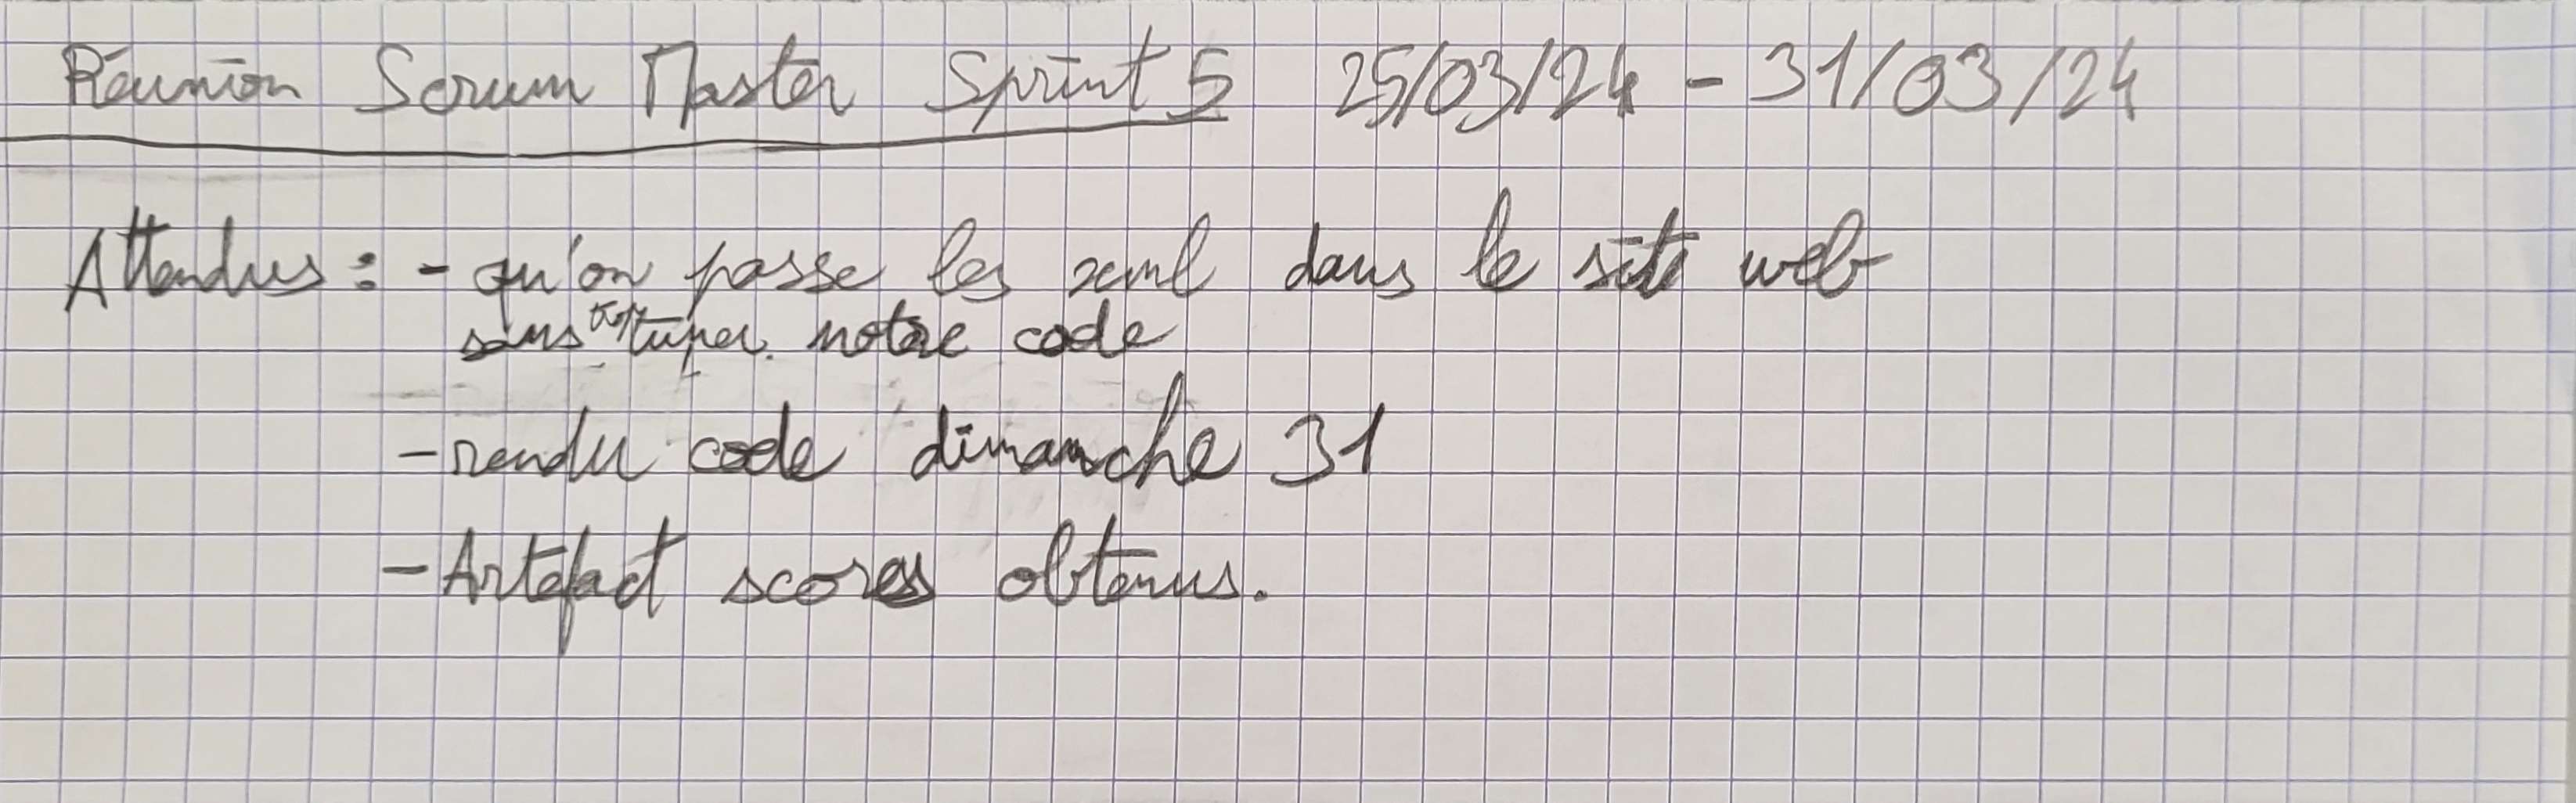 Réunion Scrum Master Sprint 5 25/03/24 - 31/03/24
Attendus : - qu'on passe les xml dans le site web
sans notre code
- rendu code dimanche 31
- Artefact scores obtenus.